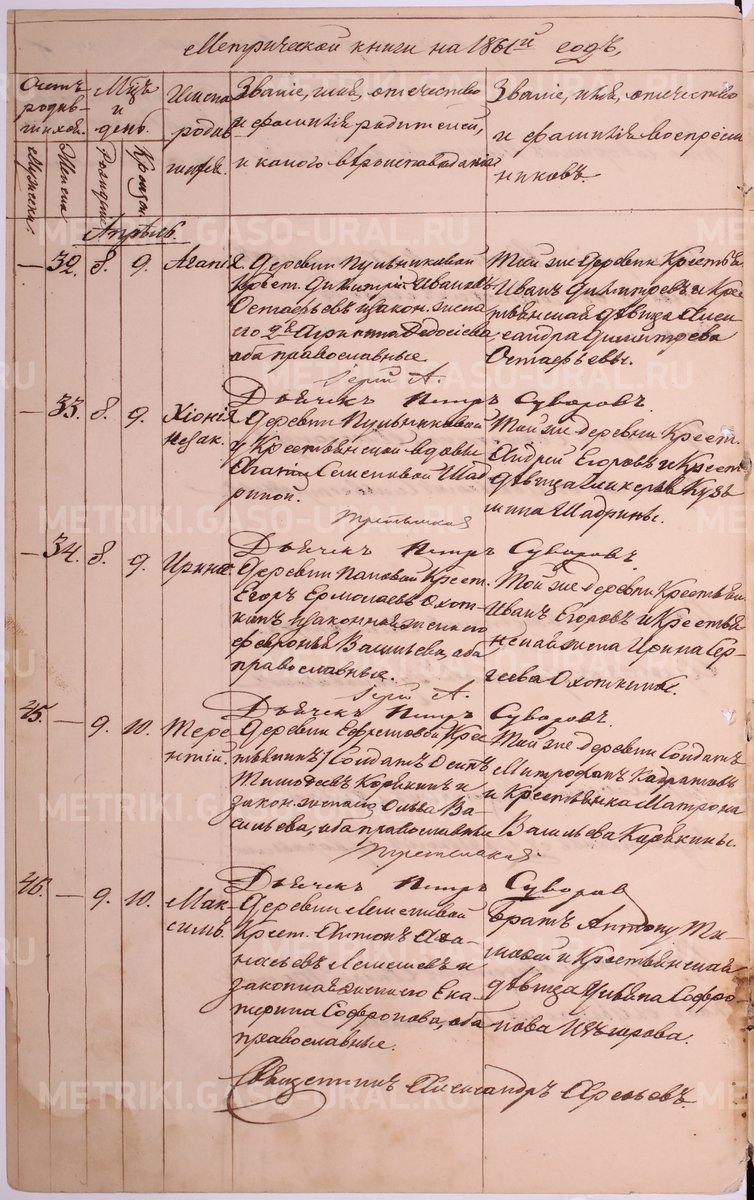 Метрической книги на 1861й годъ,
Счетъ родив-шихся.
Мужеска.
Женска
Мцъ и день.
Рожденiя
Крещен.
Имена родив шихся.
Званiе, имя, отчество
и фамилiя родителей,
и какого вѣроисповѣданiя
Званiе, имя, отчество
и фамилiя воспреем
никовъ.
Апрѣль.
— 32. 8. 9. Агапiя
Деревни Пульниковой
Крест. Димитрiй Ивановъ
Остафьевъ и закон. жена
его 2ю Ирина Федосѣева
оба православные
Той же деревни Крестья
Иванъ Димитрiевъ и Крес
тьянская дѣвица Алек
сандра Димитрiева
Остафьевы.
Iерей А.
Дьячекъ Петръ Суворовъ.
— 33. 8. 9. Хiонiя
незак.
Деревни Пульниковой
у Крестьянской вдовы
Агапiи Семеновой Шад
риной.
Той же деревни Крест.
Андрей Егоровъ и Крест.
дѣвица Кузь
мина Шадрины.
Дьячекъ Петръ Суворовъ.
— 34. 8. 9. Ирина.
Деревни Паповой Крест.
Егоръ Ермолаевъ Охот-
кинъ и законная жена его
Февронья Васильева, оба
православные.
Той же деревни Крестьян
Иванъ Егоровъ и Крестья
нская жена Ирина Сер-
геева Охоткины.
Iерей А.
Дьячекъ Петръ Суворовъ.
45. — 9. 10. Тере
нтiй.
Деревни Ефремовой Крес
тьянинъ) Солдатъ Осипъ
Тимофеевъ Корякинъ и
закон. жена его Ольга Ва-
сильева, оба православные
Той же деревни Солдатъ
Митрофанъ Кадратовъ
и Крестьянка Матрона
Васильева Корякины.
Дьячекъ Петръ Суворовъ
46. — 9. 10. Мак-
симъ.
Деревни Лемешевой
Крест. Антонъ Афа-
насьевъ Лемешевъ и
законная жена его Ека-
терина Софронова, оба
православные.
Братъ Антону Ти-
мофей и Крестьянская
дѣвица Ульяна Софро
нова
Священникъ Александръ Арефьевъ.
METRIKI.GASO-URAL.RU